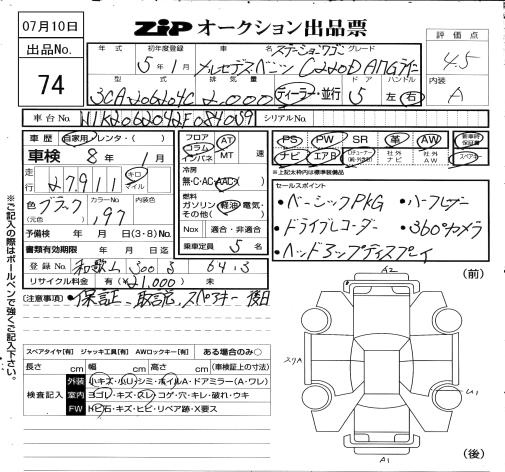 07月10日
ZIP オークション出品票
出品No.
74
評価点
4.5
内装
A
年式 初年度登録 車名 グレード
5年1月 メルセデスベンツ ステーションワゴン C220D AMGライン
型式 排気量 ドア ハンドル
3CA-206204C 2,000 ディーラー・並行 5 左 右
車台No. W1K2062042F084059 シリアルNo.
車歴 自家用・レンタ・( )
車検 8年 1月
走行 27,911 キロ マイル
色(元色) ブラック カラーNo. 197 内装色
予備検 年 月 日(3・8)No.
書類有効期限 年 月 日迄
登録No. 和歌山 300 る 64-3
リサイクル料金 有(¥21,000) 未
フロア コラム インパネ AT MT 速
冷房 無・C・AC・AAC・( )
燃料 ガソリン・軽油・電気・その他( )
Nox 適合・非適合
乗車定員 5名
PS PW SR 革 AW 新車時保証書
ナビ エアB 社外ナビ 社外AW スペアキー
※上記太枠内は標準装備品
セールスポイント
・ベーシックPKG ・ハーフレザー
・ドライブレコーダー ・360°カメラ
・ヘッドアップディスプレイ
(注意事項) ・保証、取説、スペアキー 後日
スペアタイヤ[有] ジャッキ工具[有] AWロックキー[有] ある場合のみ○
長さ cm 幅 cm 高さ cm (車検証上の寸法)
検査記入
外装 小キズ・小U・シミ・ホイルA・ドアミラー(A・ワレ)
室内 ヨゴレ・キズ・スレ・コゲ・穴・キレ・破れ・ウキ
FW トビ石・キズ・ヒビ・リペア跡・X要ス
※ご記入の際はボールペンで強くご記入下さい。
(前)
A2
スリA
U1
A1
(後)